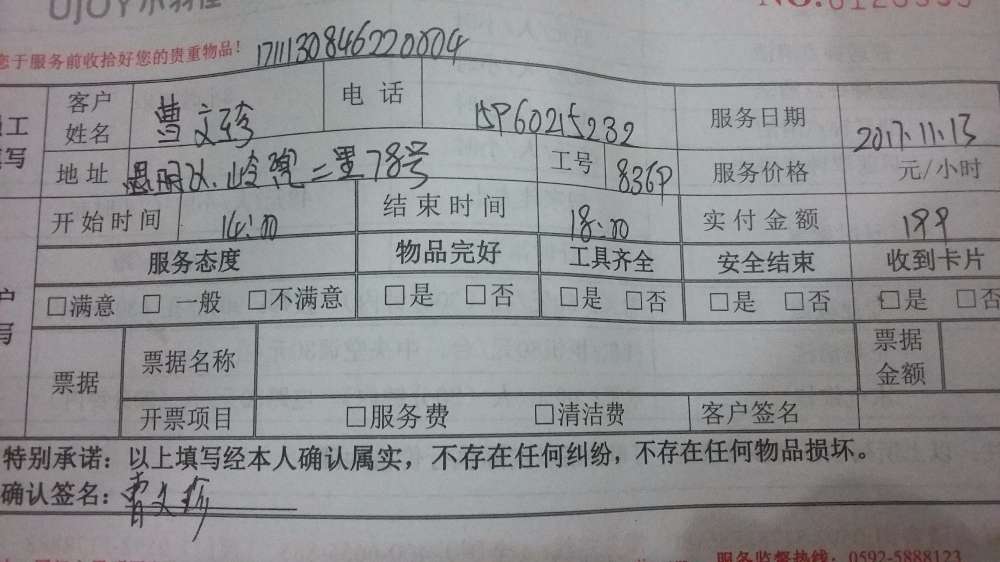 UJOY
NO.
您于服务前收拾好您的贵重物品! 1711130846220004
工 客户姓名 曹文珍 电话 15960215232 服务日期 2017.11.13
写 地址 思明区 岭兜二里78号 工号 8369 服务价格 元/小时
开始时间 14:00 结束时间 18:00 实付金额 199
服务态度 物品完好 工具齐全 安全结束 收到卡片
户 □满意 □一般 □不满意 □是 □否 □是 □否 □是 □否 □是 □否
写 票据 票据名称 票据金额
开票项目 □服务费 □清洁费 客户签名
特别承诺：以上填写经本人确认属实，不存在任何纠纷，不存在任何物品损坏。
确认签名：曹文珍
服务监督热线：0592-5888123